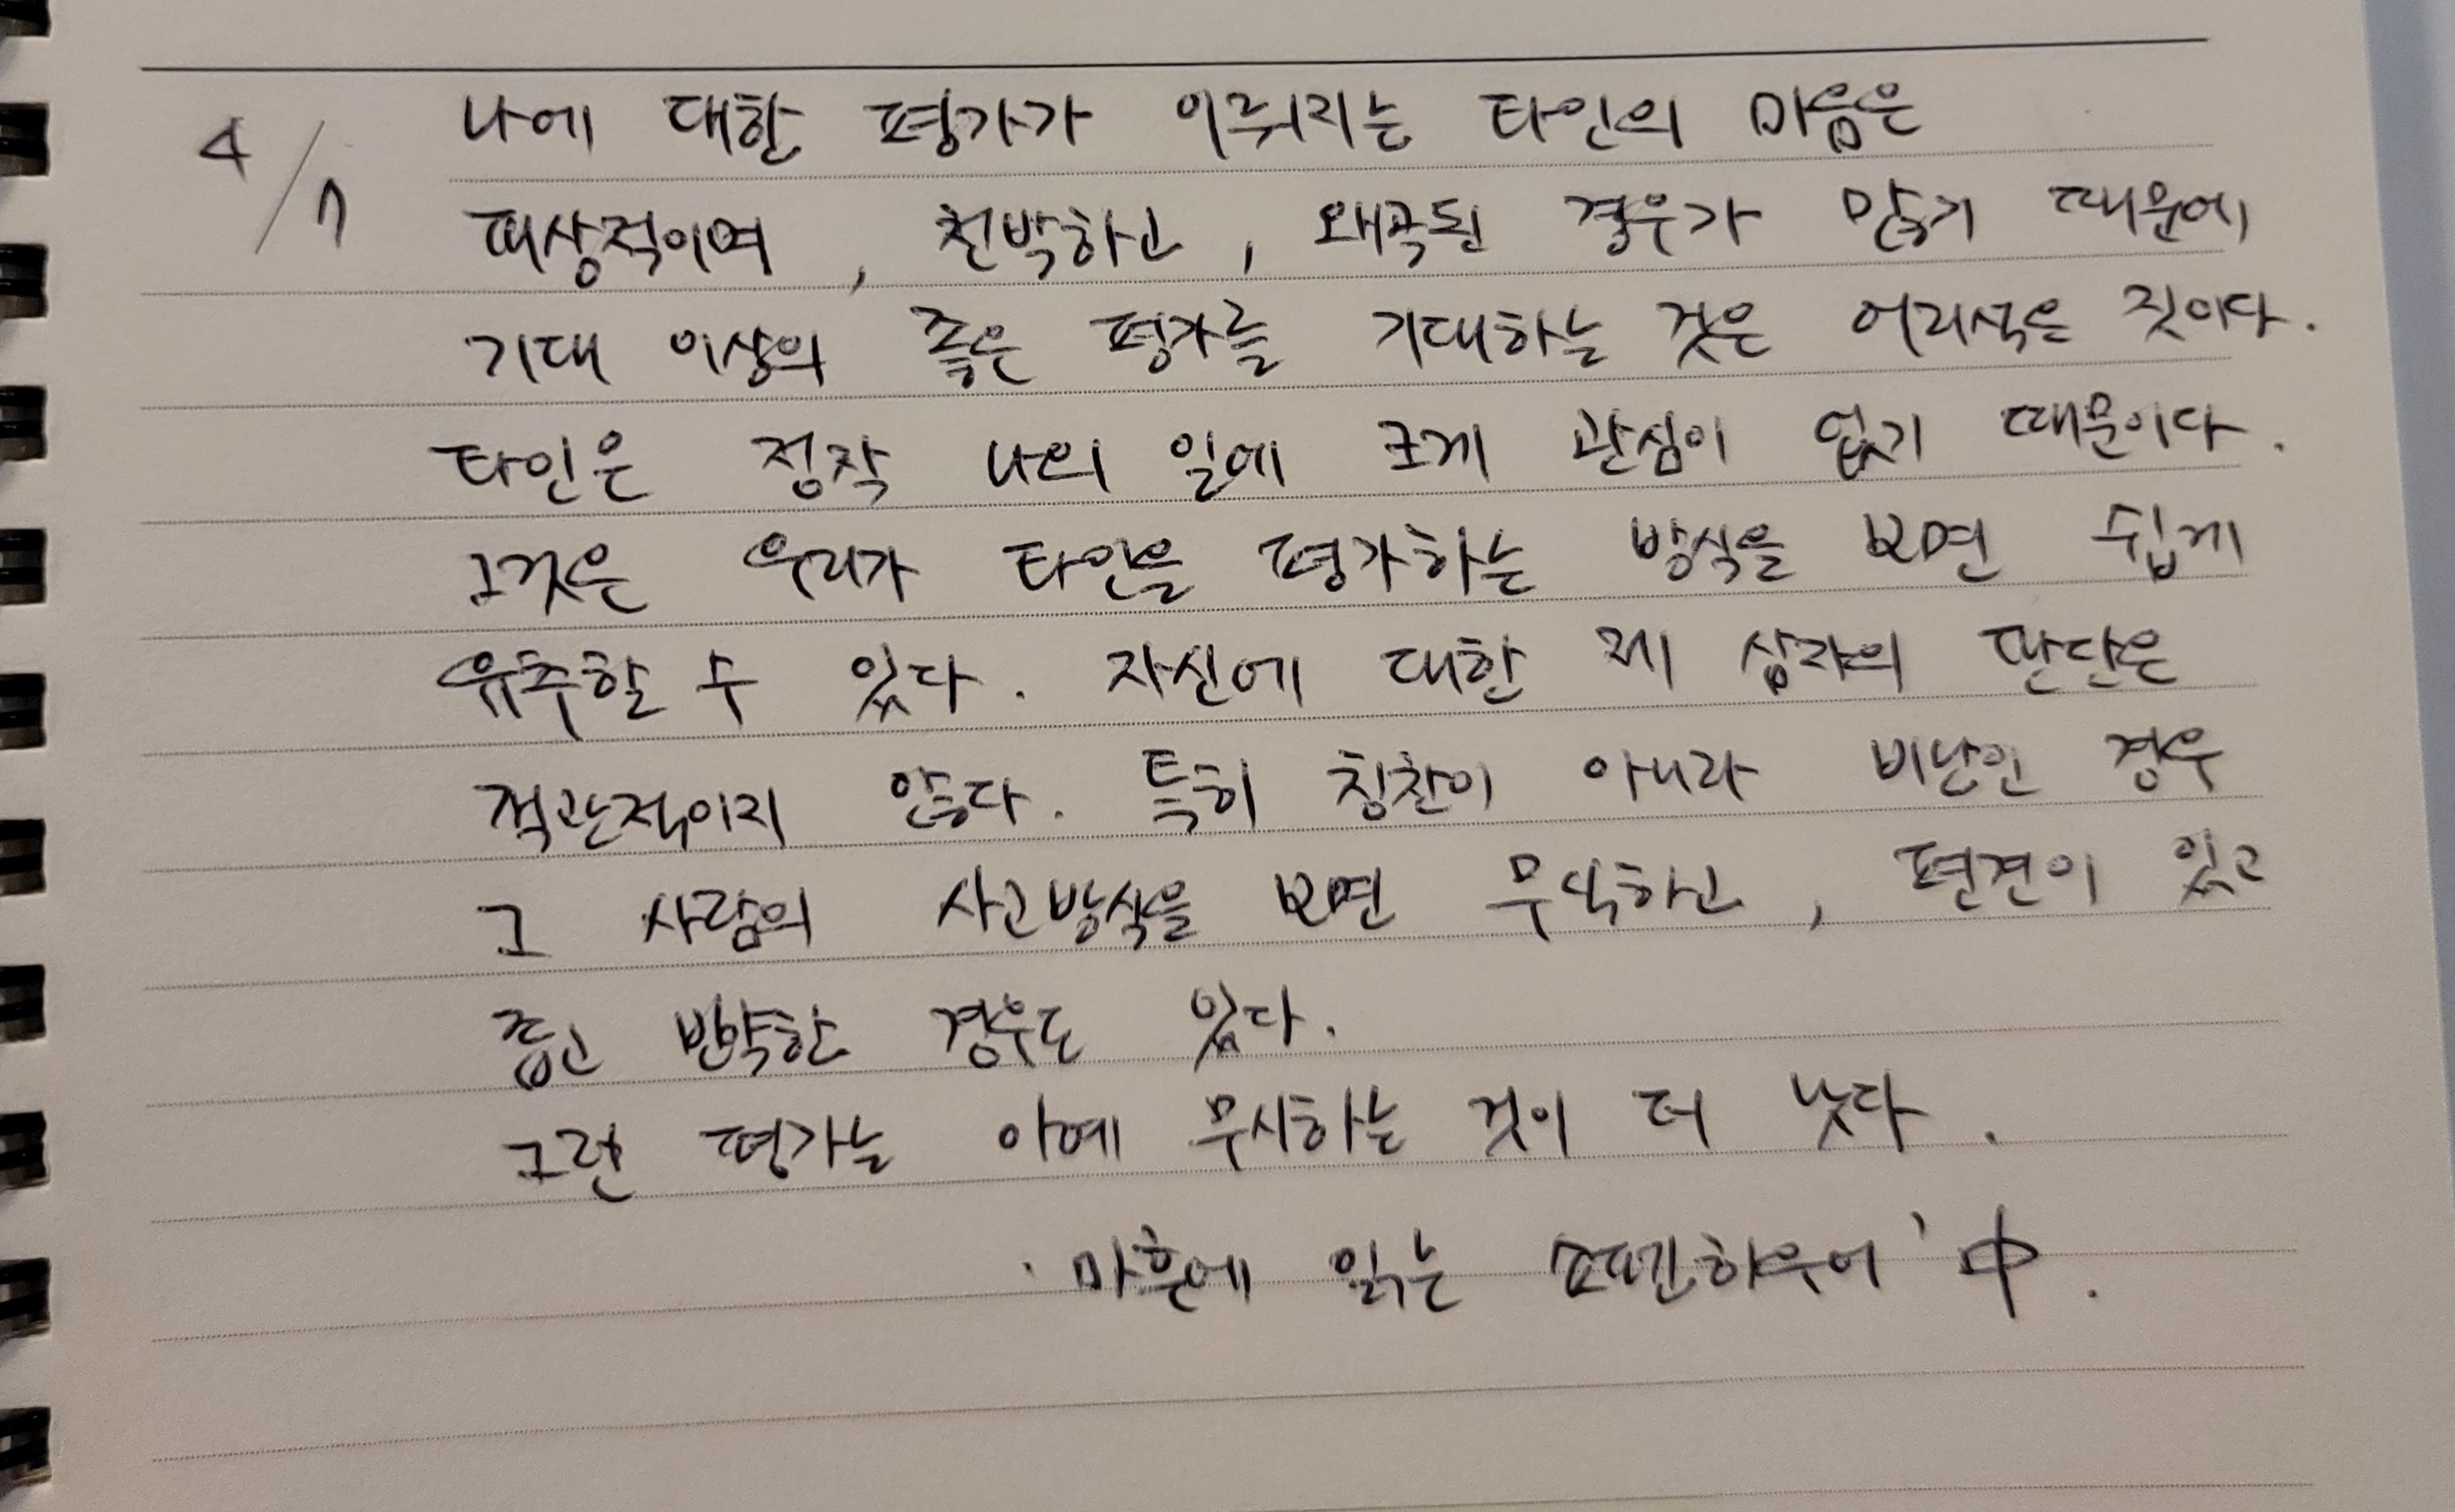 4/7 나에 대한 평가가 이뤄지는 타인의 마음은
피상적이며, 천박하고, 왜곡된 경우가 많기 때문에
기대 이상의 좋은 평가를 기대하는 것은 어리석은 짓이다.
타인은 정작 나의 일에 크게 관심이 없기 때문이다.
그것은 우리가 타인을 평가하는 방식을 보면 쉽게
유추할 수 있다. 자신에 대한 제 삼자의 판단은
객관적이지 않다. 특히 칭찬이 아니라 비난인 경우
그 사람의 사고방식을 보면 무식하고, 편견이 있고
좁고 빈약한 경우도 있다.
그런 평가는 아예 무시하는 것이 더 낫다.
'마흔에 읽는 쇼펜하우어' 中.